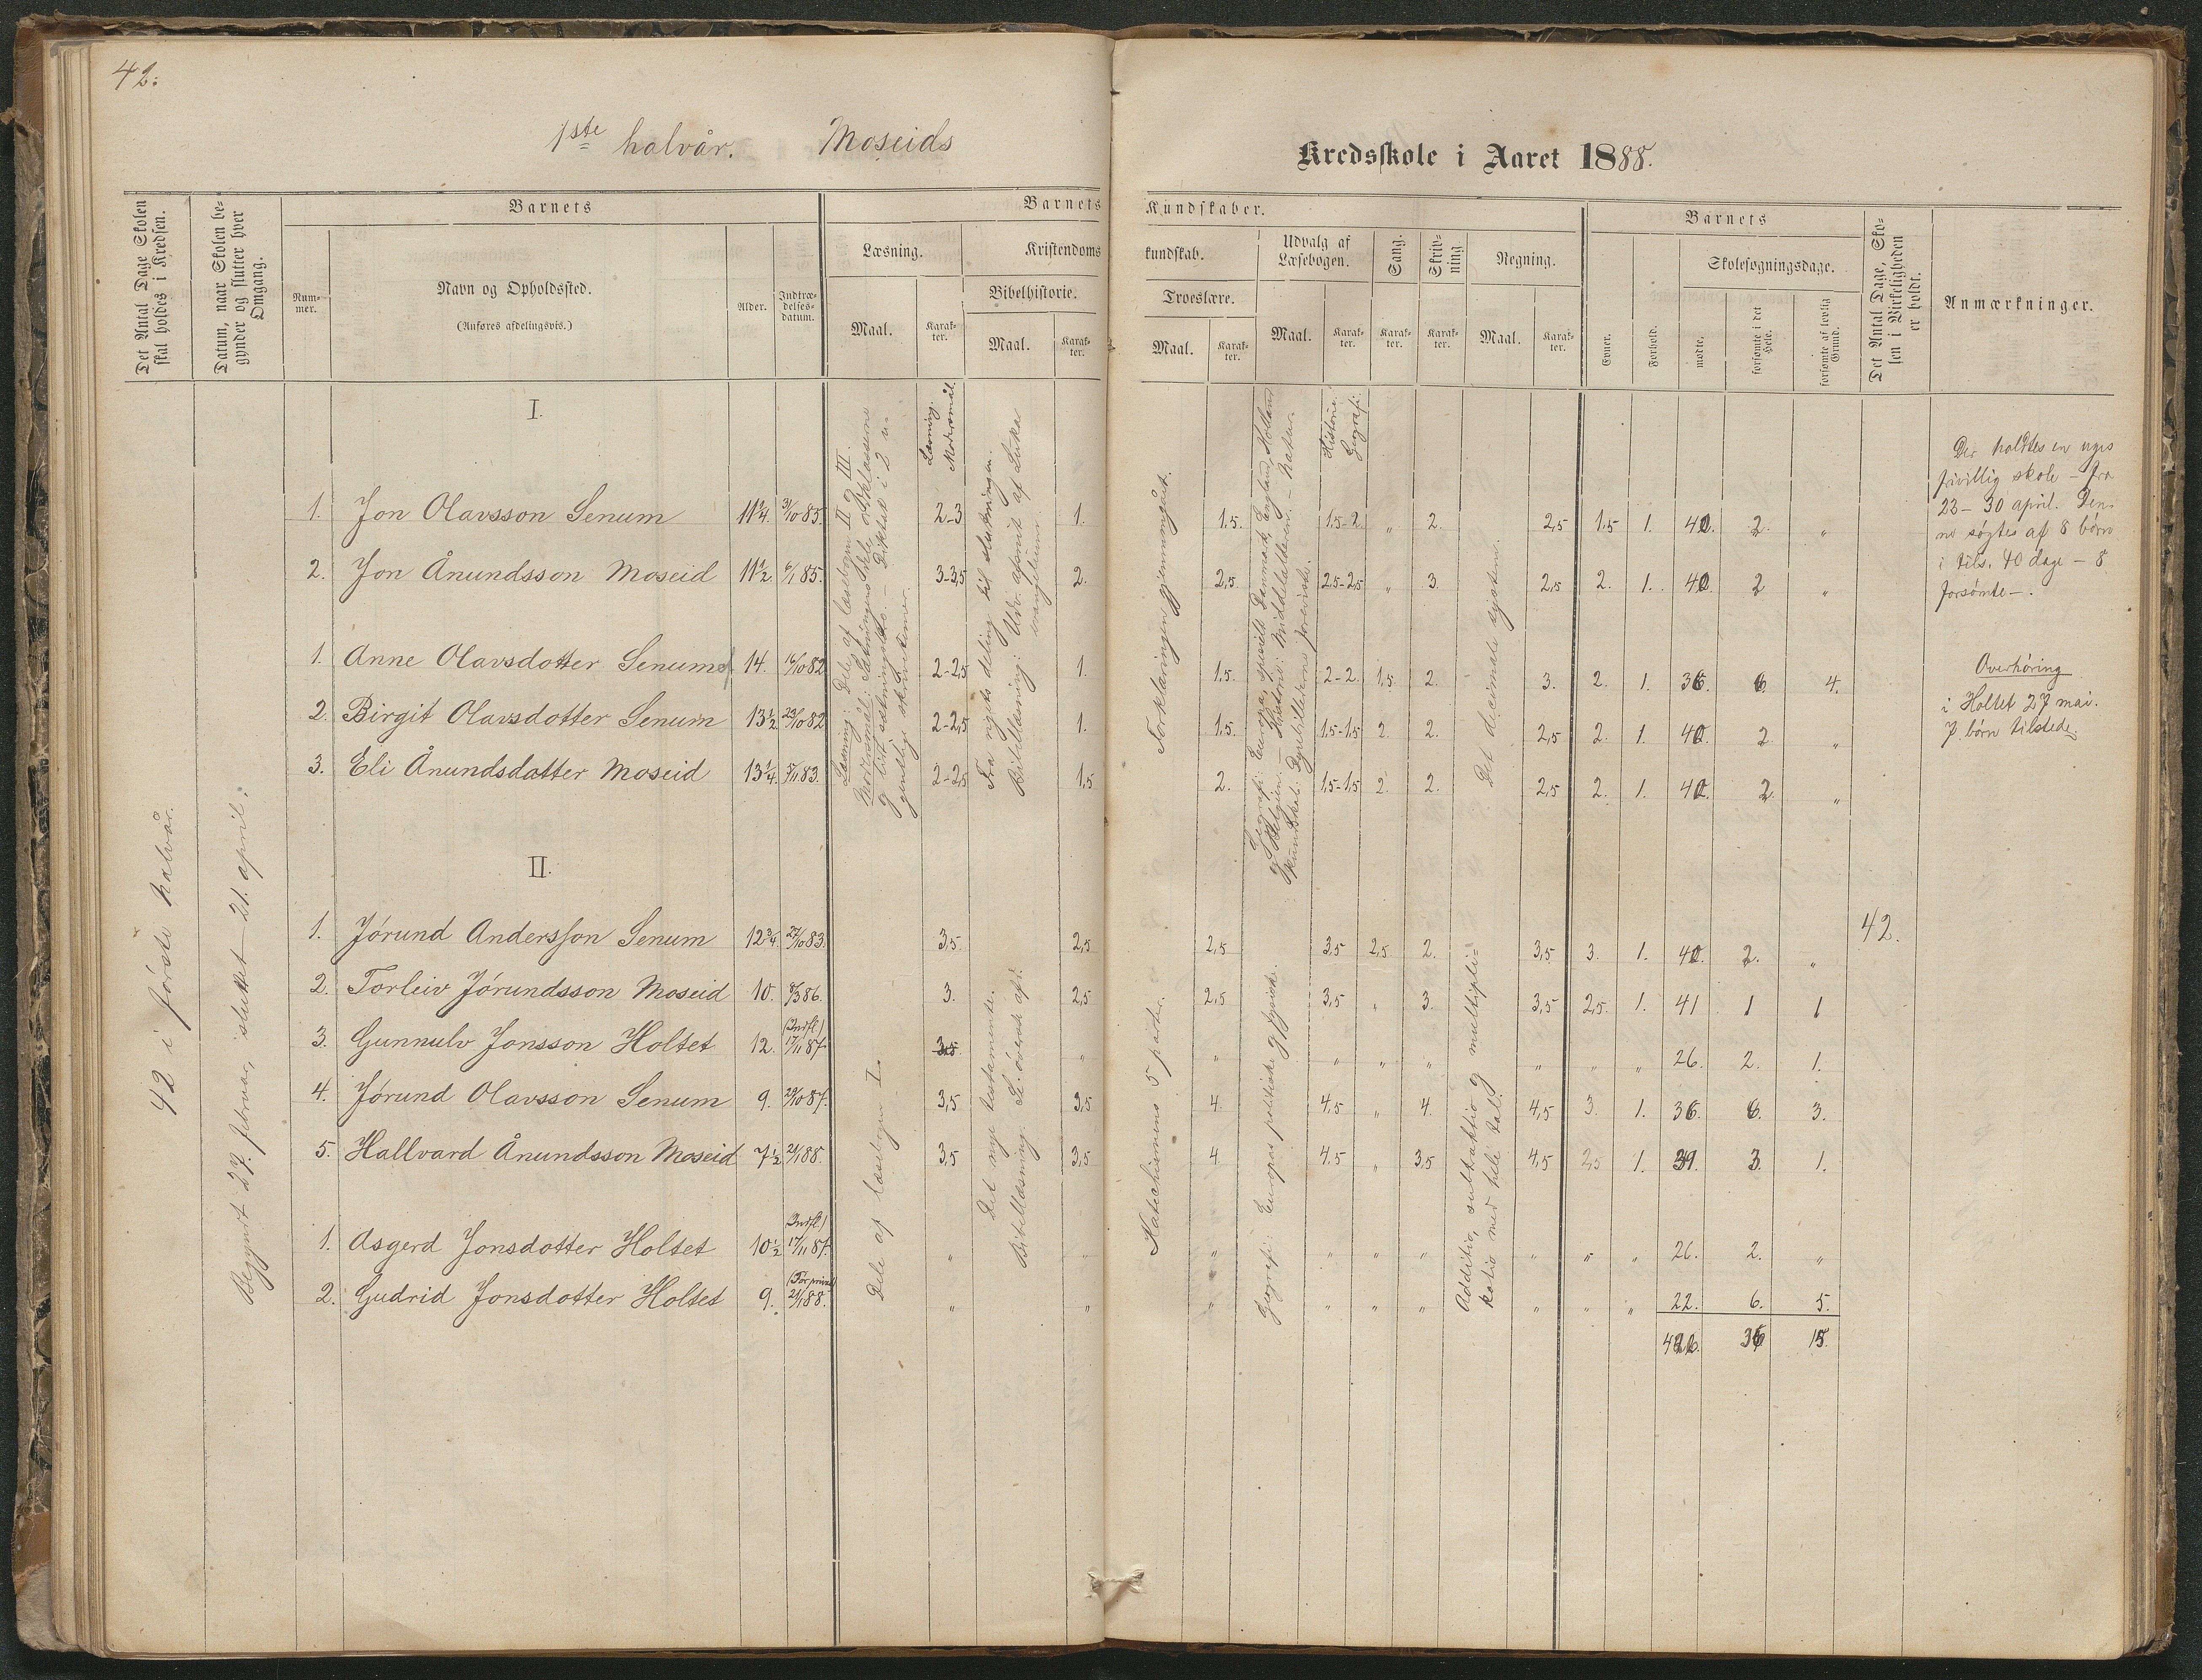 42.
1ste halvår. Moseids
Kredsskole i Aaret 1888.
Det Antal Dage Skolen skal holdes i Kredsen.
Datum, naar Skolen begynder og slutter hver Omgang.
Barnets
Nummer.
Navn og Opholdssted.
(Anføres afdelingsvis.)
Alder.
Indtrædelsesdatum.
Barnets Kundskaber.
Læsning.
Maal.
Karakter.
Kristendomskundskab.
Bibelhistorie.
Maal.
Karakter.
Troeslære.
Maal.
Karakter.
Udvalg af Læsebogen.
Maal.
Karakter.
Sang.
Karakter.
Skrivning
Karakter.
Regning.
Maal.
Karakter.
Barnets
Evner.
Forhold.
Skolesøgningsdage.
mødte.
forsømte i det Hele.
forsømte af lovlig Grund.
Det Antal Dage, Skolen i Virkeligheden er holdt.
Anmærkninger.
42 i første halvår.
Begyndt 27. februar, sluttet 21. april.
Læsning: Dele af læsebogen II og III.
Læsning. Modersmål.
Fra rigets deling til slutningen.
Bibellæsning: Udv. afsnit af Lukas evangelium
Forklaringen gjennemgået.
Historie. Geografi.
Det decimale system.
I.
1. Jon Olavsson Senum 11 1/4. 31/10 85. 2-3 1. 1.5. 1.5-2. " 2. 2,5 1.5 1. 40. 2. "
2. Jon Ånundsson Moseid 11 1/2. 6/1 85. 3-3,5 2. 2,5. 2.5-2,5 " 3. 2,5 2. 1. 40. 2 "
1. Anne Olavsdotter Senum 14. 16/10 82 2-2,5 1. 1.5. 2-2. 1.5 2. 3. 2. 1. 36. 6. 4.
2. Birgit Olavsdotter Senum 13 1/2. 23/10 82 2-2,5 1. 1.5. 1.5-1.5 2. 2. 2,5 2. 1. 40. 2 "
3. Eli Ånundsdatter Moseid 13 1/4. 5/11 83. 2-2,5 1,5 2. 1.5-1.5 2. 2. 2,5 2. 1. 40. 2. "
Der holdtes en uges
frivillig skole – fra
23-30 april. Den-
ne søgtes af 8 børn
i tils. 40 dage – 8
forsømte –.
Overhøring
i Holtet 27 mai.
7 børn tilstede.
II.
Dele af læsebogen I.
Det nye testamente.
Katechismens 5 parter.
Geografi: Europas politiske og fysiske.
Additio, subtraktio og multiplikatio med hele tal.
1. Jørund Andersson Senum 12 3/4. 27/10 83. 3,5 2,5 2,5 3,5 2,5 2. 3,5 3. 1. 40. 2. " 42.
2. Torleiv Jørundsson Moseid 10. 8/3 86. 3. 2,5 2,5 3,5 " 3. 3,5 2,5. 1. 41 1 1
3. Gunnulv Jonsson Holtet 12. (Indfl.) 17/11 87. " " " " " " " " 26. 2. 1.
4. Jørund Olavsson Senum 9. 29/10 87. 3,5 3,5 4. 4,5 " 4. 4,5 3. 1. 36. 6. 3.
5. Hallvard Ånundsson Moseid 7 1/2 21/1 88. 3,5 3,5 4. 4.5 " 3,5 4,5 1. 39. 3. 1.
1. Asgerd Jonsdotter Holtet 10 1/2 (Indfl.) 17/11 87. " " " " " " " " 26. 2. "
2. Gudrid Jonsdotter Holtet 9. 21/1 88. " " " " " " " " " 22. 6. 5.
15.